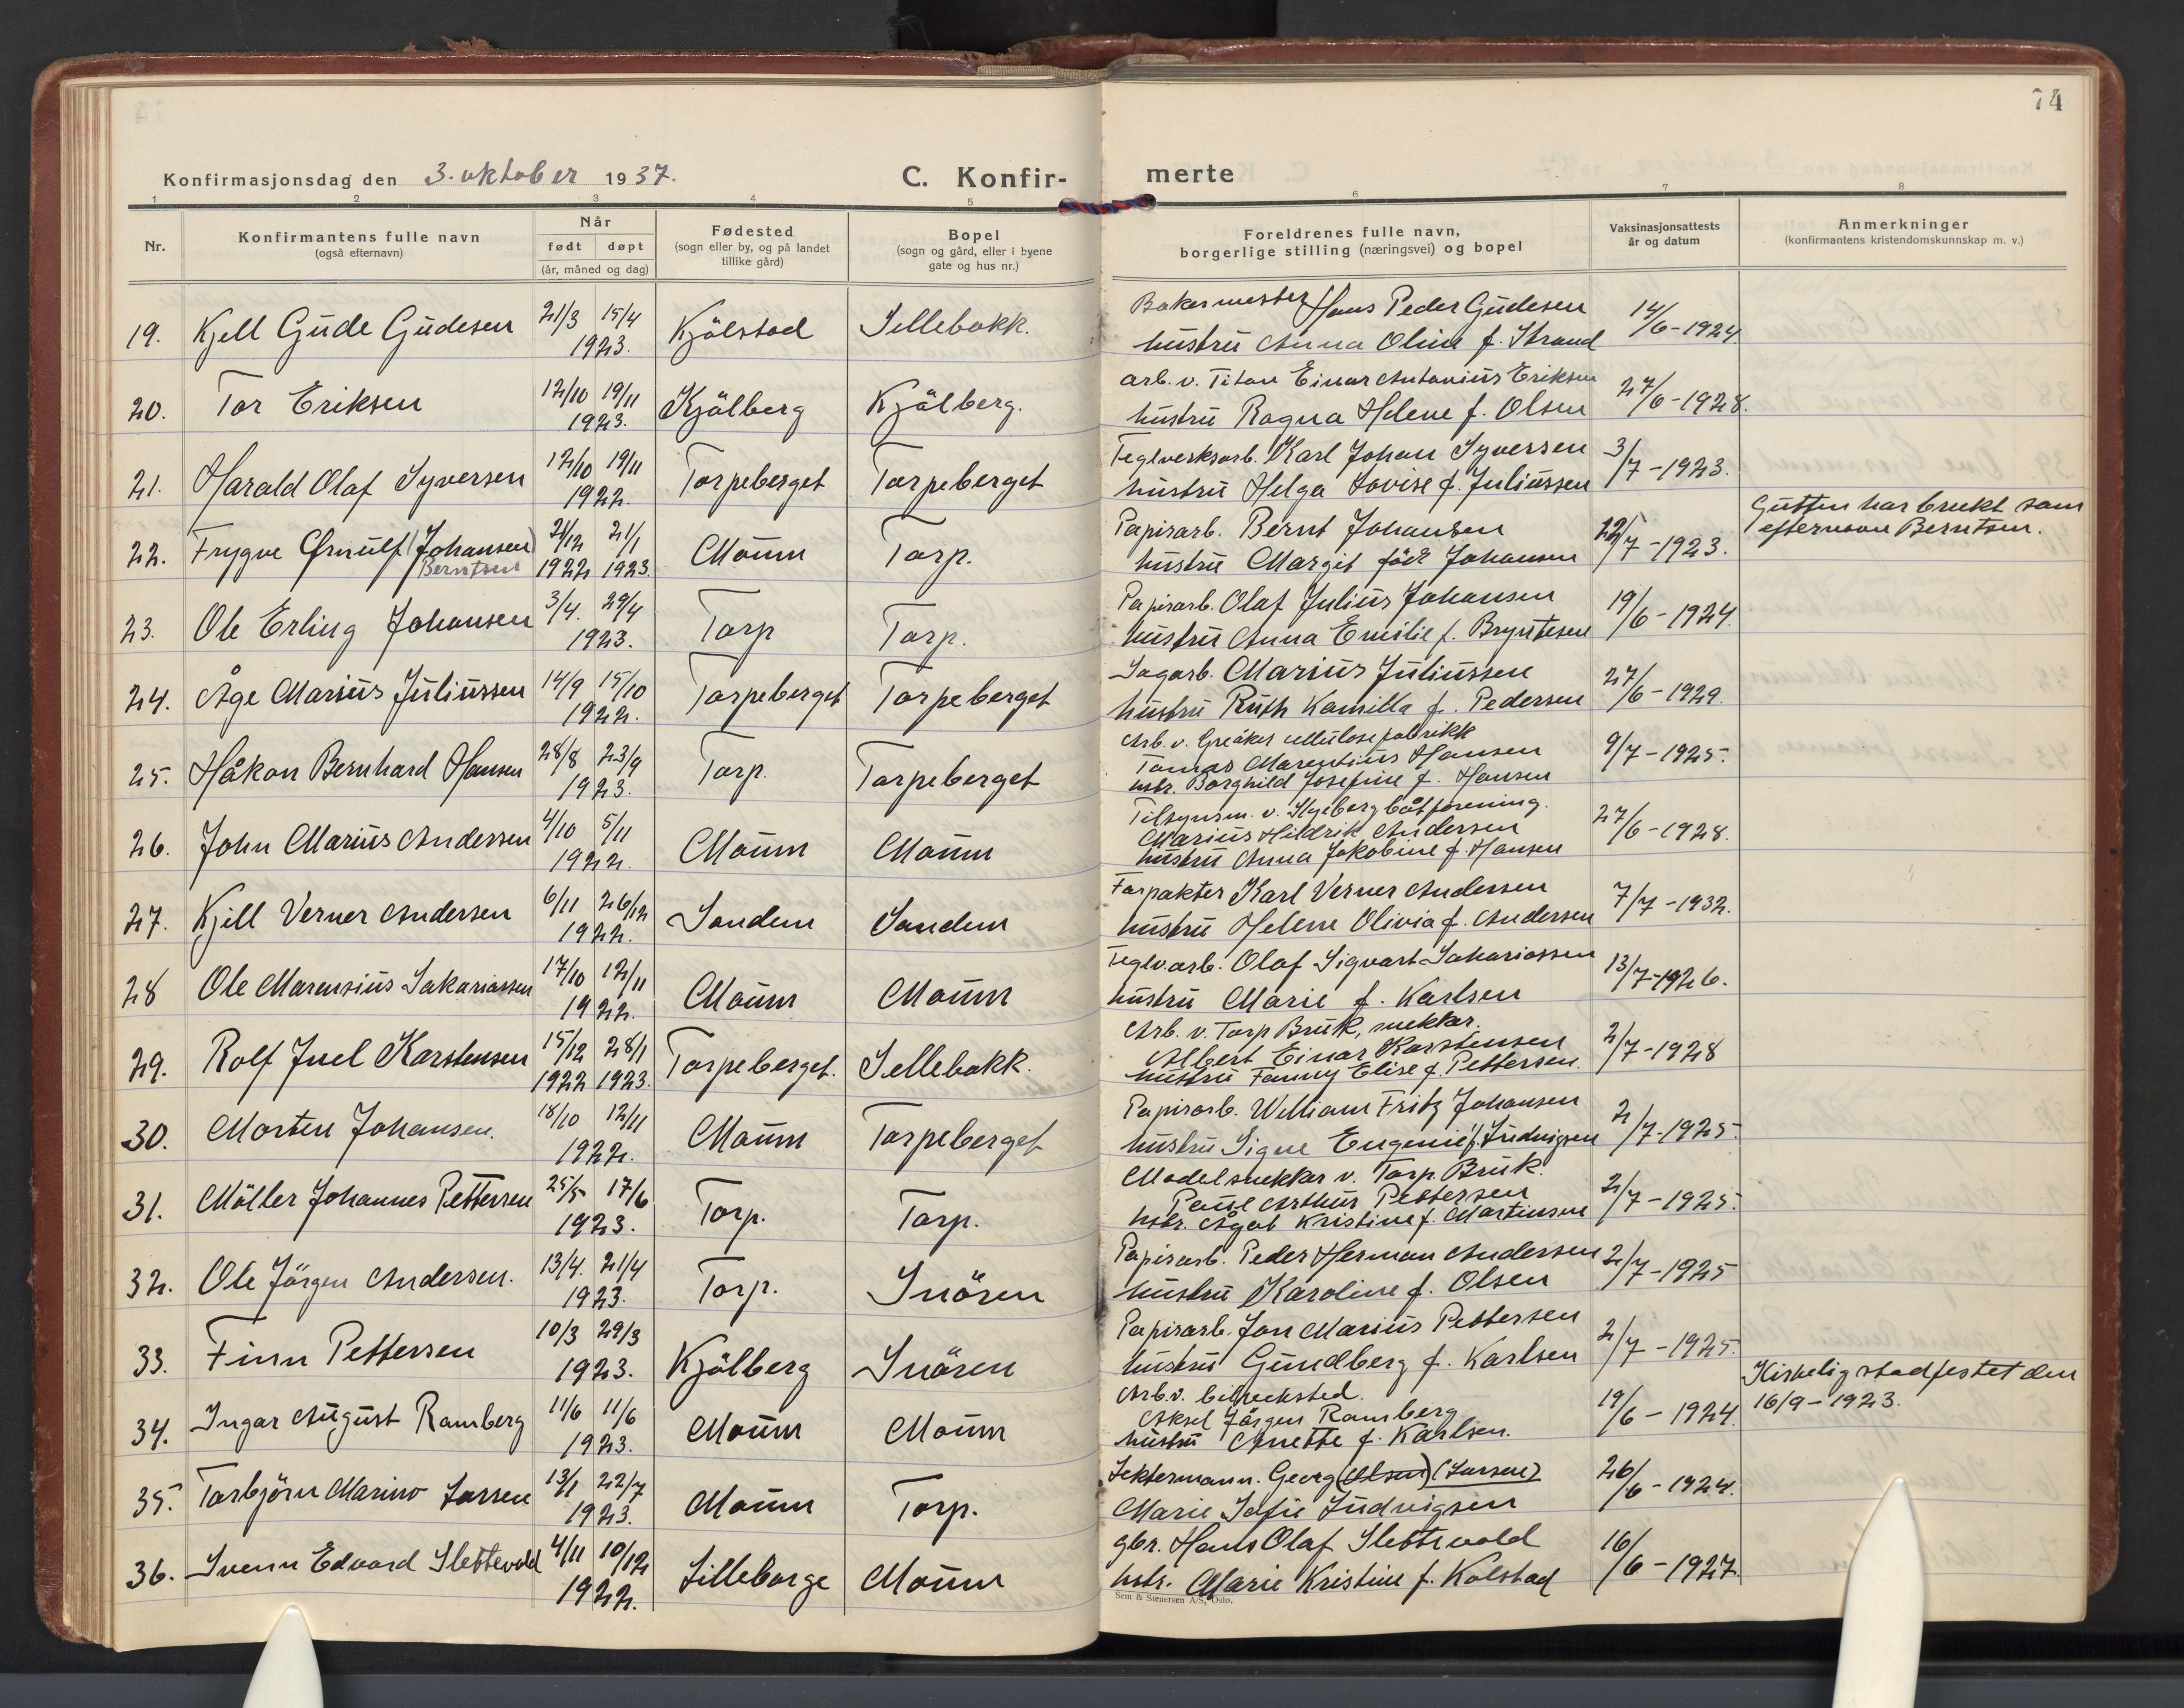 74
Konfirmasjonsdag den 3. oktober 1937.
C. Konfir-
merte
1 2 3 4 5 6 7 8
Nr. | Konfirmantens fulle navn (også efternavn) | Når født | døpt (år, måned og dag) | Fødested (sogn eller by, og på landet tillike gård) | Bopel (sogn og gård, eller i byene gate og hus nr.) | Foreldrenes fulle navn, borgerlige stilling (næringsvei) og bopel | Vaksinasjonsattests år og datum | Anmerkninger (konfirmantens kristendomskunnskap m. v.)
19. Kjell Gude Gudesen 21/3 15/4 1923. Kjölstad Sellebakk. Bakermester Hans Peder Gudesen
hustru Anna Oline f. Strand 14/6-1924
20. Tor Eriksen 12/10 19/11 1923. Kjölberg Kjölberg. Arb. v. Titan Einar Antonius Eriksen
hustru Ragna Helene f. Olsen 27/6-1928.
21. Harald Olaf Syversen 12/10 19/11 1922. Torpeberget Torpeberget Teglverksarb. Karl Johan Syversen
hustru Helga Lovise f. Juliussen 3/7-1923.
22. Trygve Ørnulf (Johansen) Berntsen 21/12 1922 21/1 1923. Moum Torp. Papirarb. Bernt Johansen
hustru Margit född Johansen 22/7-1923. Gutten har brukt som
efternavn Berntsen.
23. Ole Erling Johansen 3/4. 29/4 1923. Torp Torp. Papirarb. Olaf Julius Johansen
hustru Anna Emilie f. Bryntesen 19/6-1924.
24. Åge Marius Juliussen 14/9 15/10 1922. Torpeberget Torpeberget Sagarb. Marius Juliussen
hustru Ruth Kamilla f. Pedersen 27/6-1929.
25. Håkon Bernhard Hansen 28/8 23/9 1923. Torp. Torpeberget Arb. v. Greåker cellulosefabrikk
Tomas Marentius Hansen
hstr. Borghild Josefine f. Hansen 9/7-1925.
26. John Marius Andersen 4/10 5/11 1922. Moum Moum Tilsynsm. v. Skjeberg båtforening.
Marius Hildrik Andersen
hustru Anna Jakobine f. Hansen 27/6-1928.
27. Kjell Verner Andersen 6/11 26/12 1922. Sandem Sandem Forpakter Karl Verner Andersen
hustru Helene Olivia f. Andersen 7/7-1932.
28 Ole Marensius Sakariassen 17/10 12/11 1922. Moum Moum Teglv.arb. Olaf Sigvart Sakariassen
hustru Marie f. Karlsen 13/7-1926.
29. Rolf Juel Karstensen 15/12 1922 28/1 1923. Torpeberget. Sellebakk. Arb. v. Torp Bruk, snekker.
Albert Einar Karstensen
hustru Fanny Elise f. Pettersen. 2/7-1928
30. Morten Johansen. 18/10 12/11 1922. Moum Torpeberget Papirarb. William Fritz Johansen
hustru Signe Eugenie f. Ludvigsen 2/7-1925.
31. Möller Johannes Pettersen 25/5 17/6 1923. Torp. Torp. Modelsnekker v. Torp Bruk.
Paul Arthur Pettersen
hstr. Ågot Kristine f. Martinsen 2/7-1925.
32. Ole Jörgen Andersen. 13/4. 21/4 1923. Torp. Snören Papirarb. Peder Herman Andersen
hustru Karoline f. Olsen 2/7-1925
33. Finn Pettersen 10/3 29/3 1923. Kjölberg Snören Papirarb. Jon Marius Pettersen
hustru Gundberg f. Karlsen 2/7-1925.
34. Ingar August Ramberg 11/6 11/6 1923. Moum Moum Arb. v.
Aksel Jörgen Ramberg
hustru Anette f. Karlsen. 19/6-1924. Kirkelig stadfestet den
16/9-1923.
35. Torbjörn Marino Larsen 13/1 22/7 1923. Moum Torp. Lektermann. Georg (Olsen) (Larsen)
Marie Sofie Ludvigsen 26/6-1924.
36. Svenn Edvard Slettevold 4/11 10/12 1922. Lilleborge Moum gbr. Hans Olaf Slettevold
hstr. Marie Kristine f. Kolstad 16/6-1927.
Sem & Stenersen A/S, Oslo.